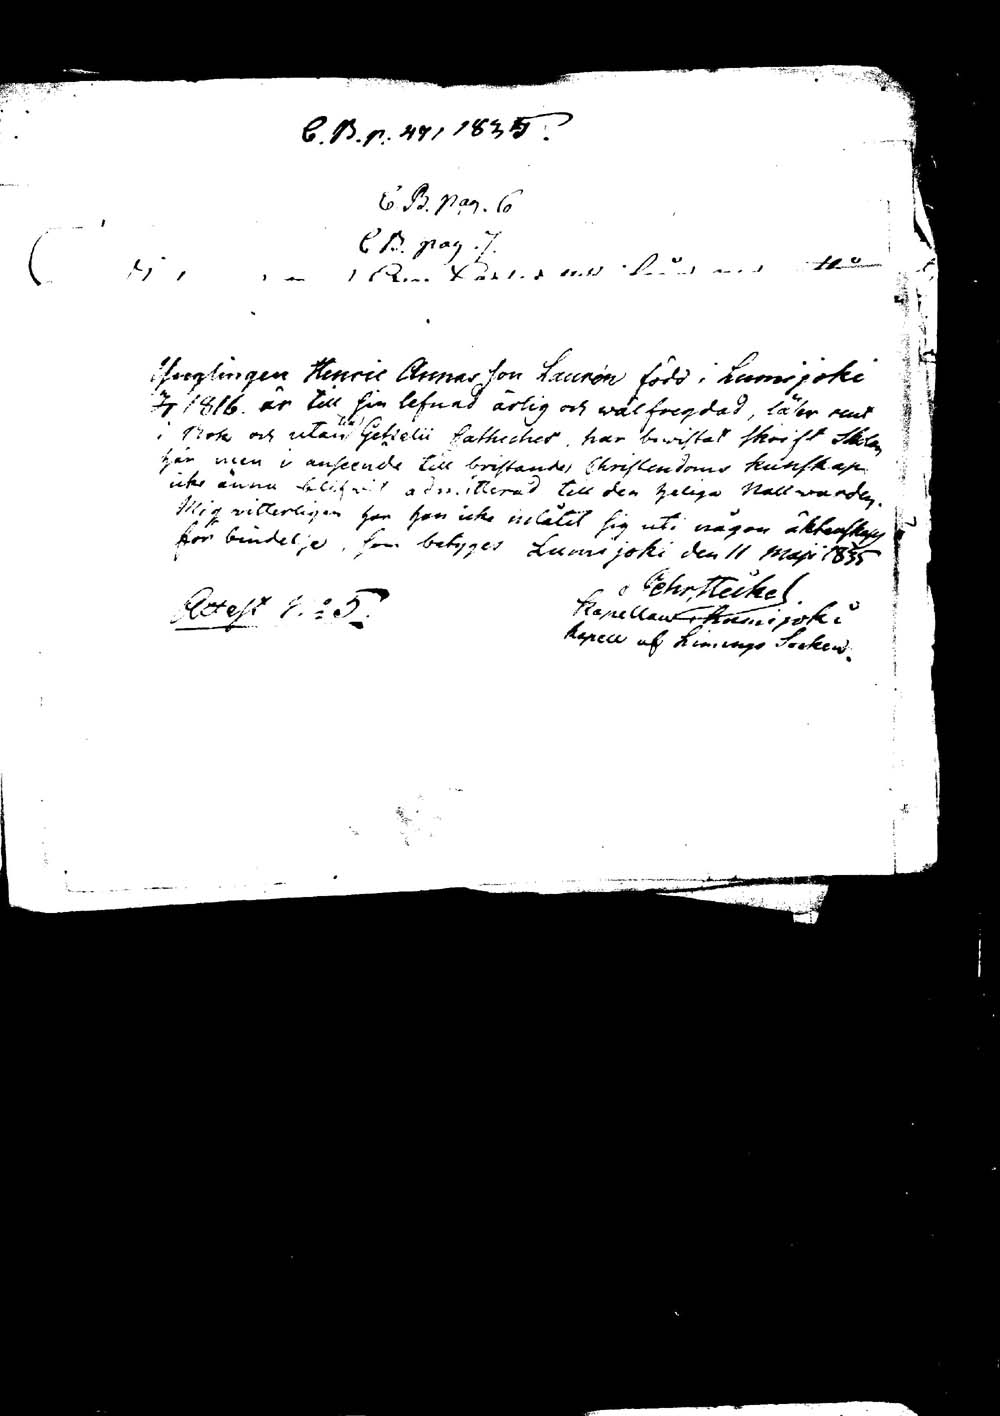 C. B. p. 471 1835.
C B. pag. 6
C B. pag. 7.
Ynglingen Henric Annas Son Laurén född i Lumijoki
1816. är till sin lefnad ärlig och wälfregdad, läser rent
i Bok och utan till Gezelii Catheches, har bewistat Skrift Skolan
här men i anseende till bristande Christendoms kunskap
icke ännu blifwit admitterad till den heliga Nattwarden.
Mig vitterligen har han icke inlåtit sig uti någon äktenskaps
för bindelse, som betyges Lumijoki den 11 Maji 1835
Attest N:o 5.
Pehr Heickel
Kapellan i Lumijoki
Kapell af Limingo Socken.